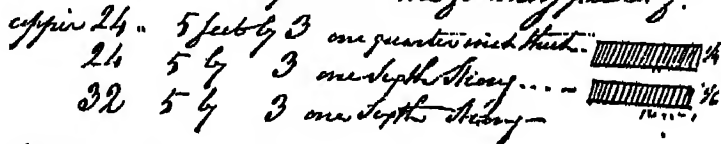 copper 24 " 5 feet by 3 one quarter inch thick 1/4
24 5 by 3 one depth strong .... 1/6
32 5 by 3 one depth strong